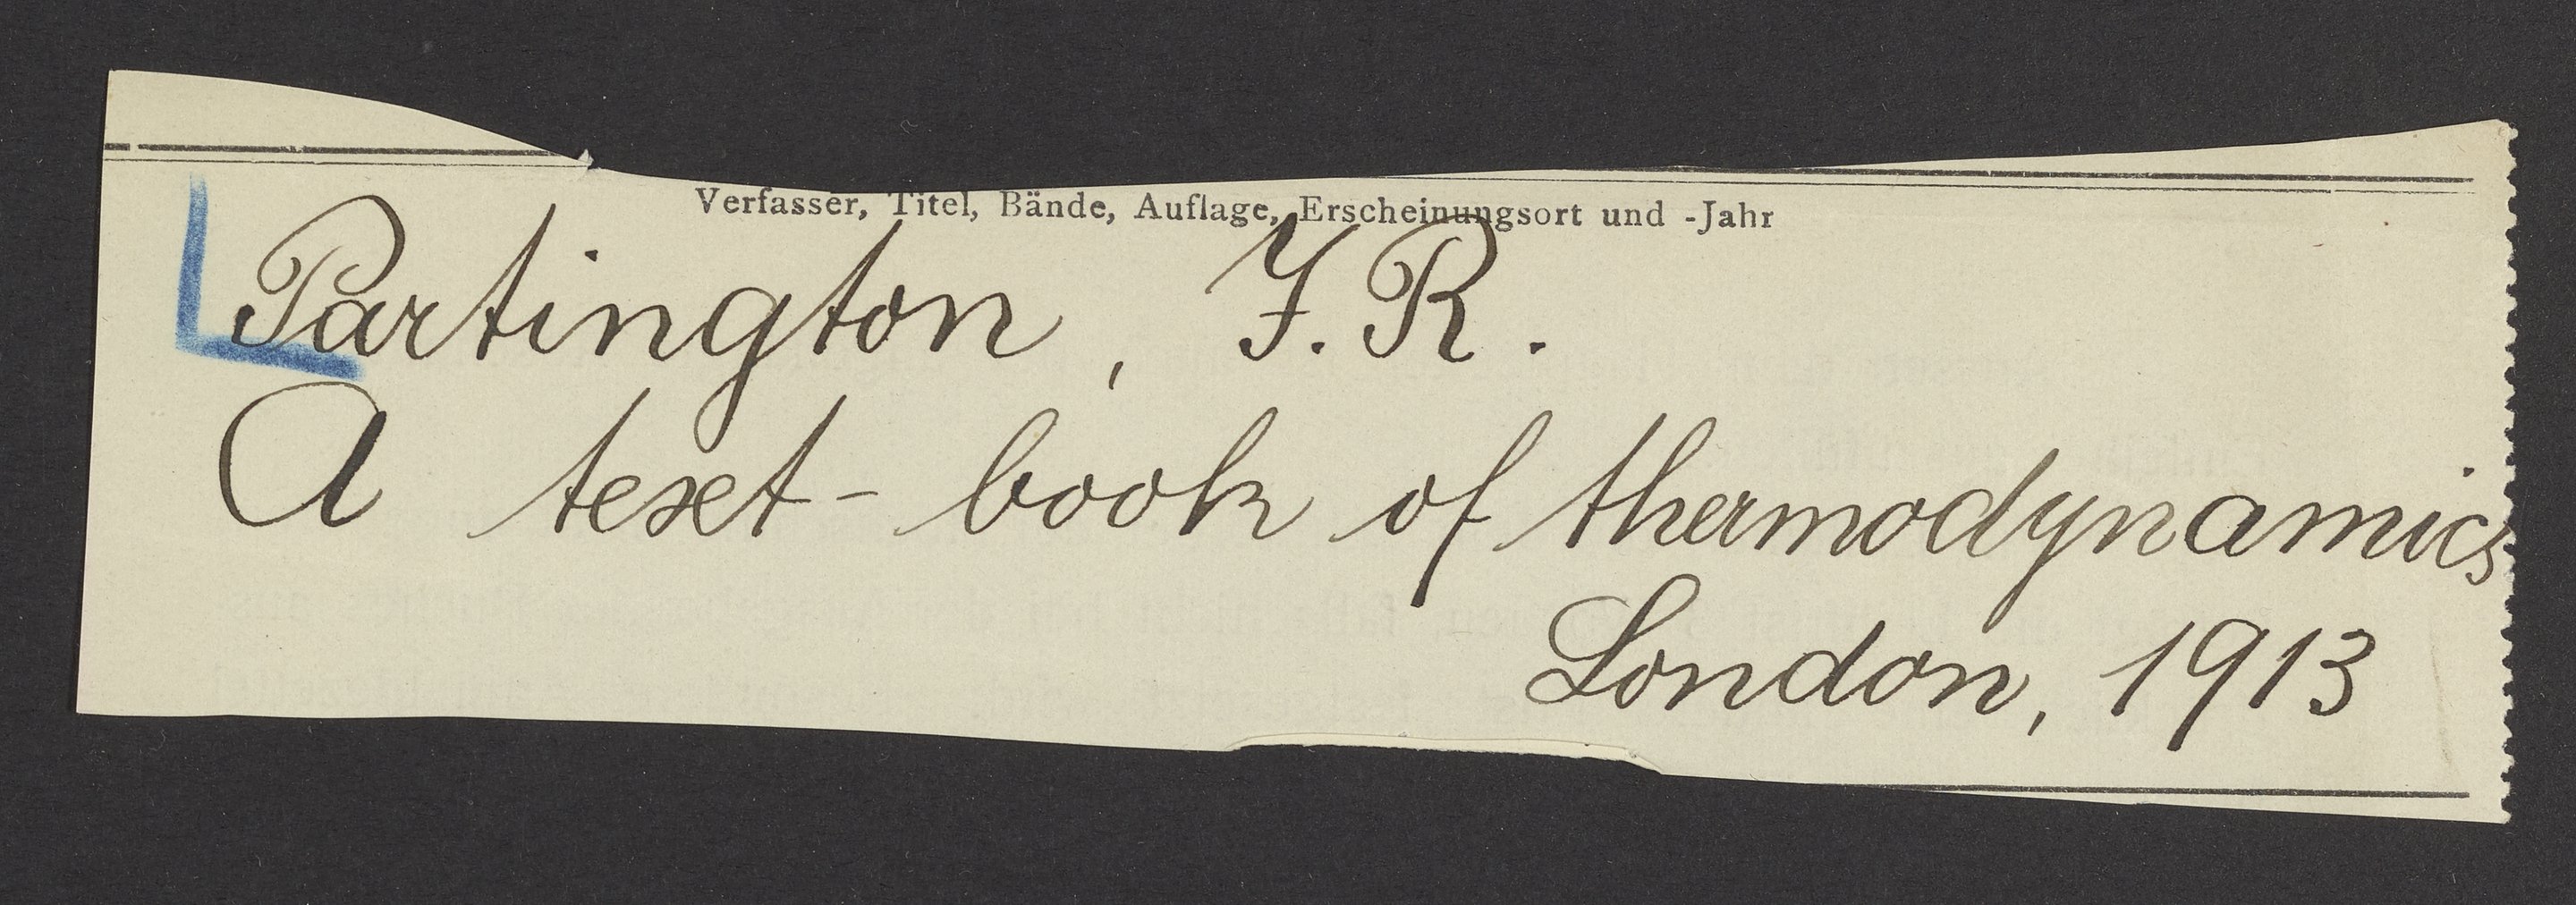 Verfasser, Titel, Bände, Auflage, Erscheinungsort und -Jahr
Partington, J. R.
A text-book of thermodynamics
London, 1913